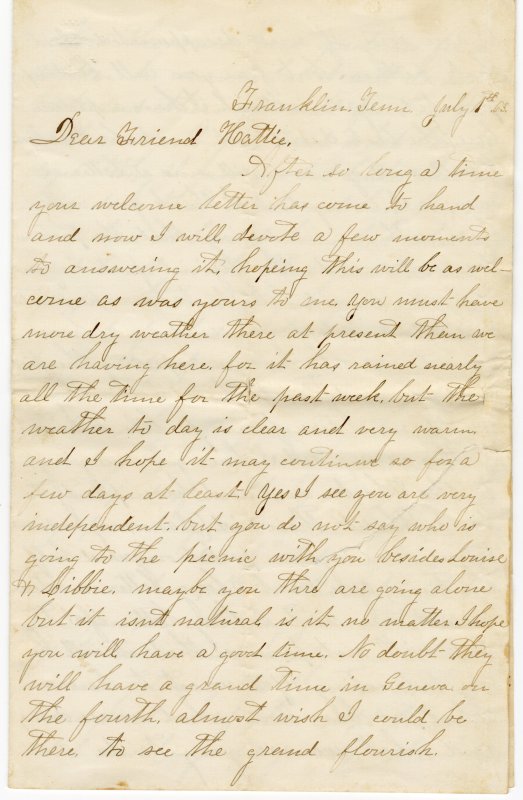 Franklin, Tenn. July 1st, 63.
Dear Friend Hattie,
After so long a time
your welcome letter has come to hand
and now I will, devote a few moments
to answering it, hopeing this will be as wel-
come as was yours to me, you must have
more dry weather there at present than we
are having here, for it has rained nearly
all the time for the past week, but the
weather to day is clear and very warm,
and I hope it may continue so for a
few days at least. Yes I see you are very
independent, but you do not say who is
going to the picnic with you besides Louise
& Libbie, maybe you thre are going alone
but it isnt natural is it, no matter I hope
you will have a good time. No doubt they
will have a grand time in Geneva on
the fourth, almost wish I could be
there, to see the grand flourish.